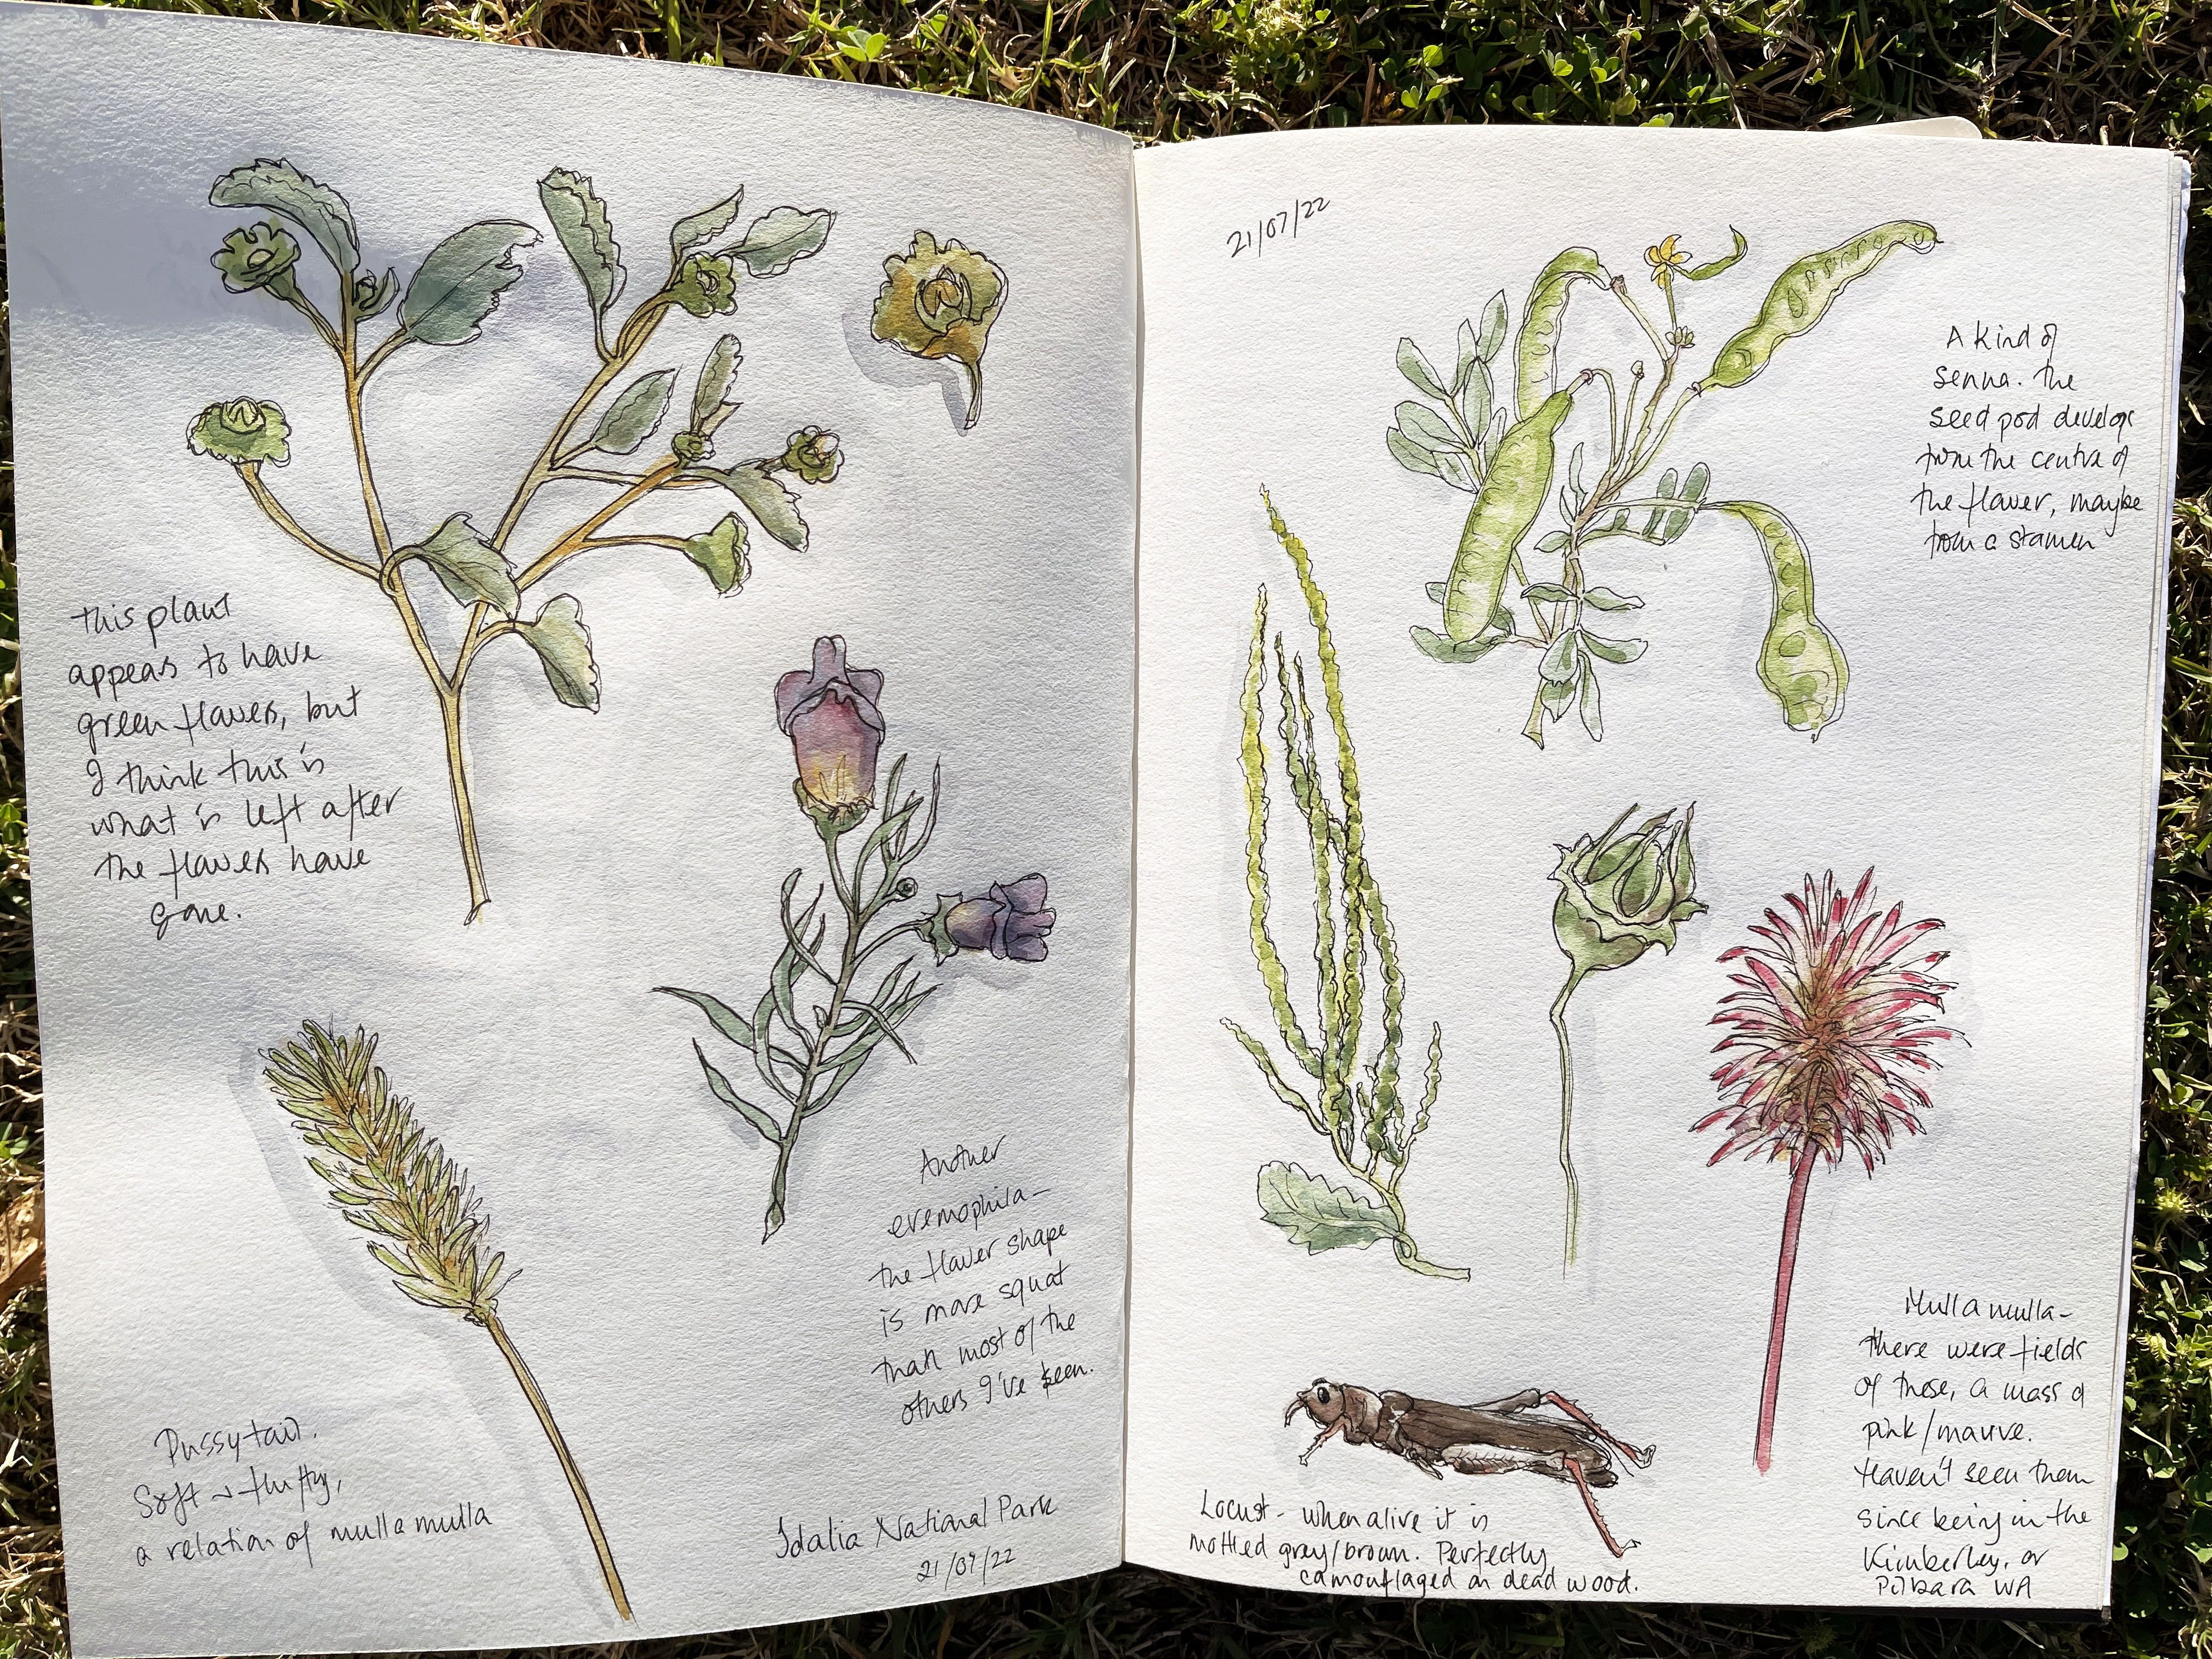 this plant
appears to have
green flowers, but
I think this is
what is left after
the flowers have
gone.
Another
eremophila -
the flower shape
is more squat
than most of the
others I've seen.
Pussytail.
Soft & fluffy,
a relation of mulla mulla
Idalia National Park
21/07/22
21/07/22
A kind of
senna. The
seed pod develops
from the centre of
the flower, maybe
from a stamen
Mulla mulla -
there were fields
of these, a mass of
pink/mauve.
Haven't seen them
since being in the
Kimberley, or
Pilbara WA
Locust - when alive it is
mottled grey/brown. Perfectly
camouflaged on dead wood.